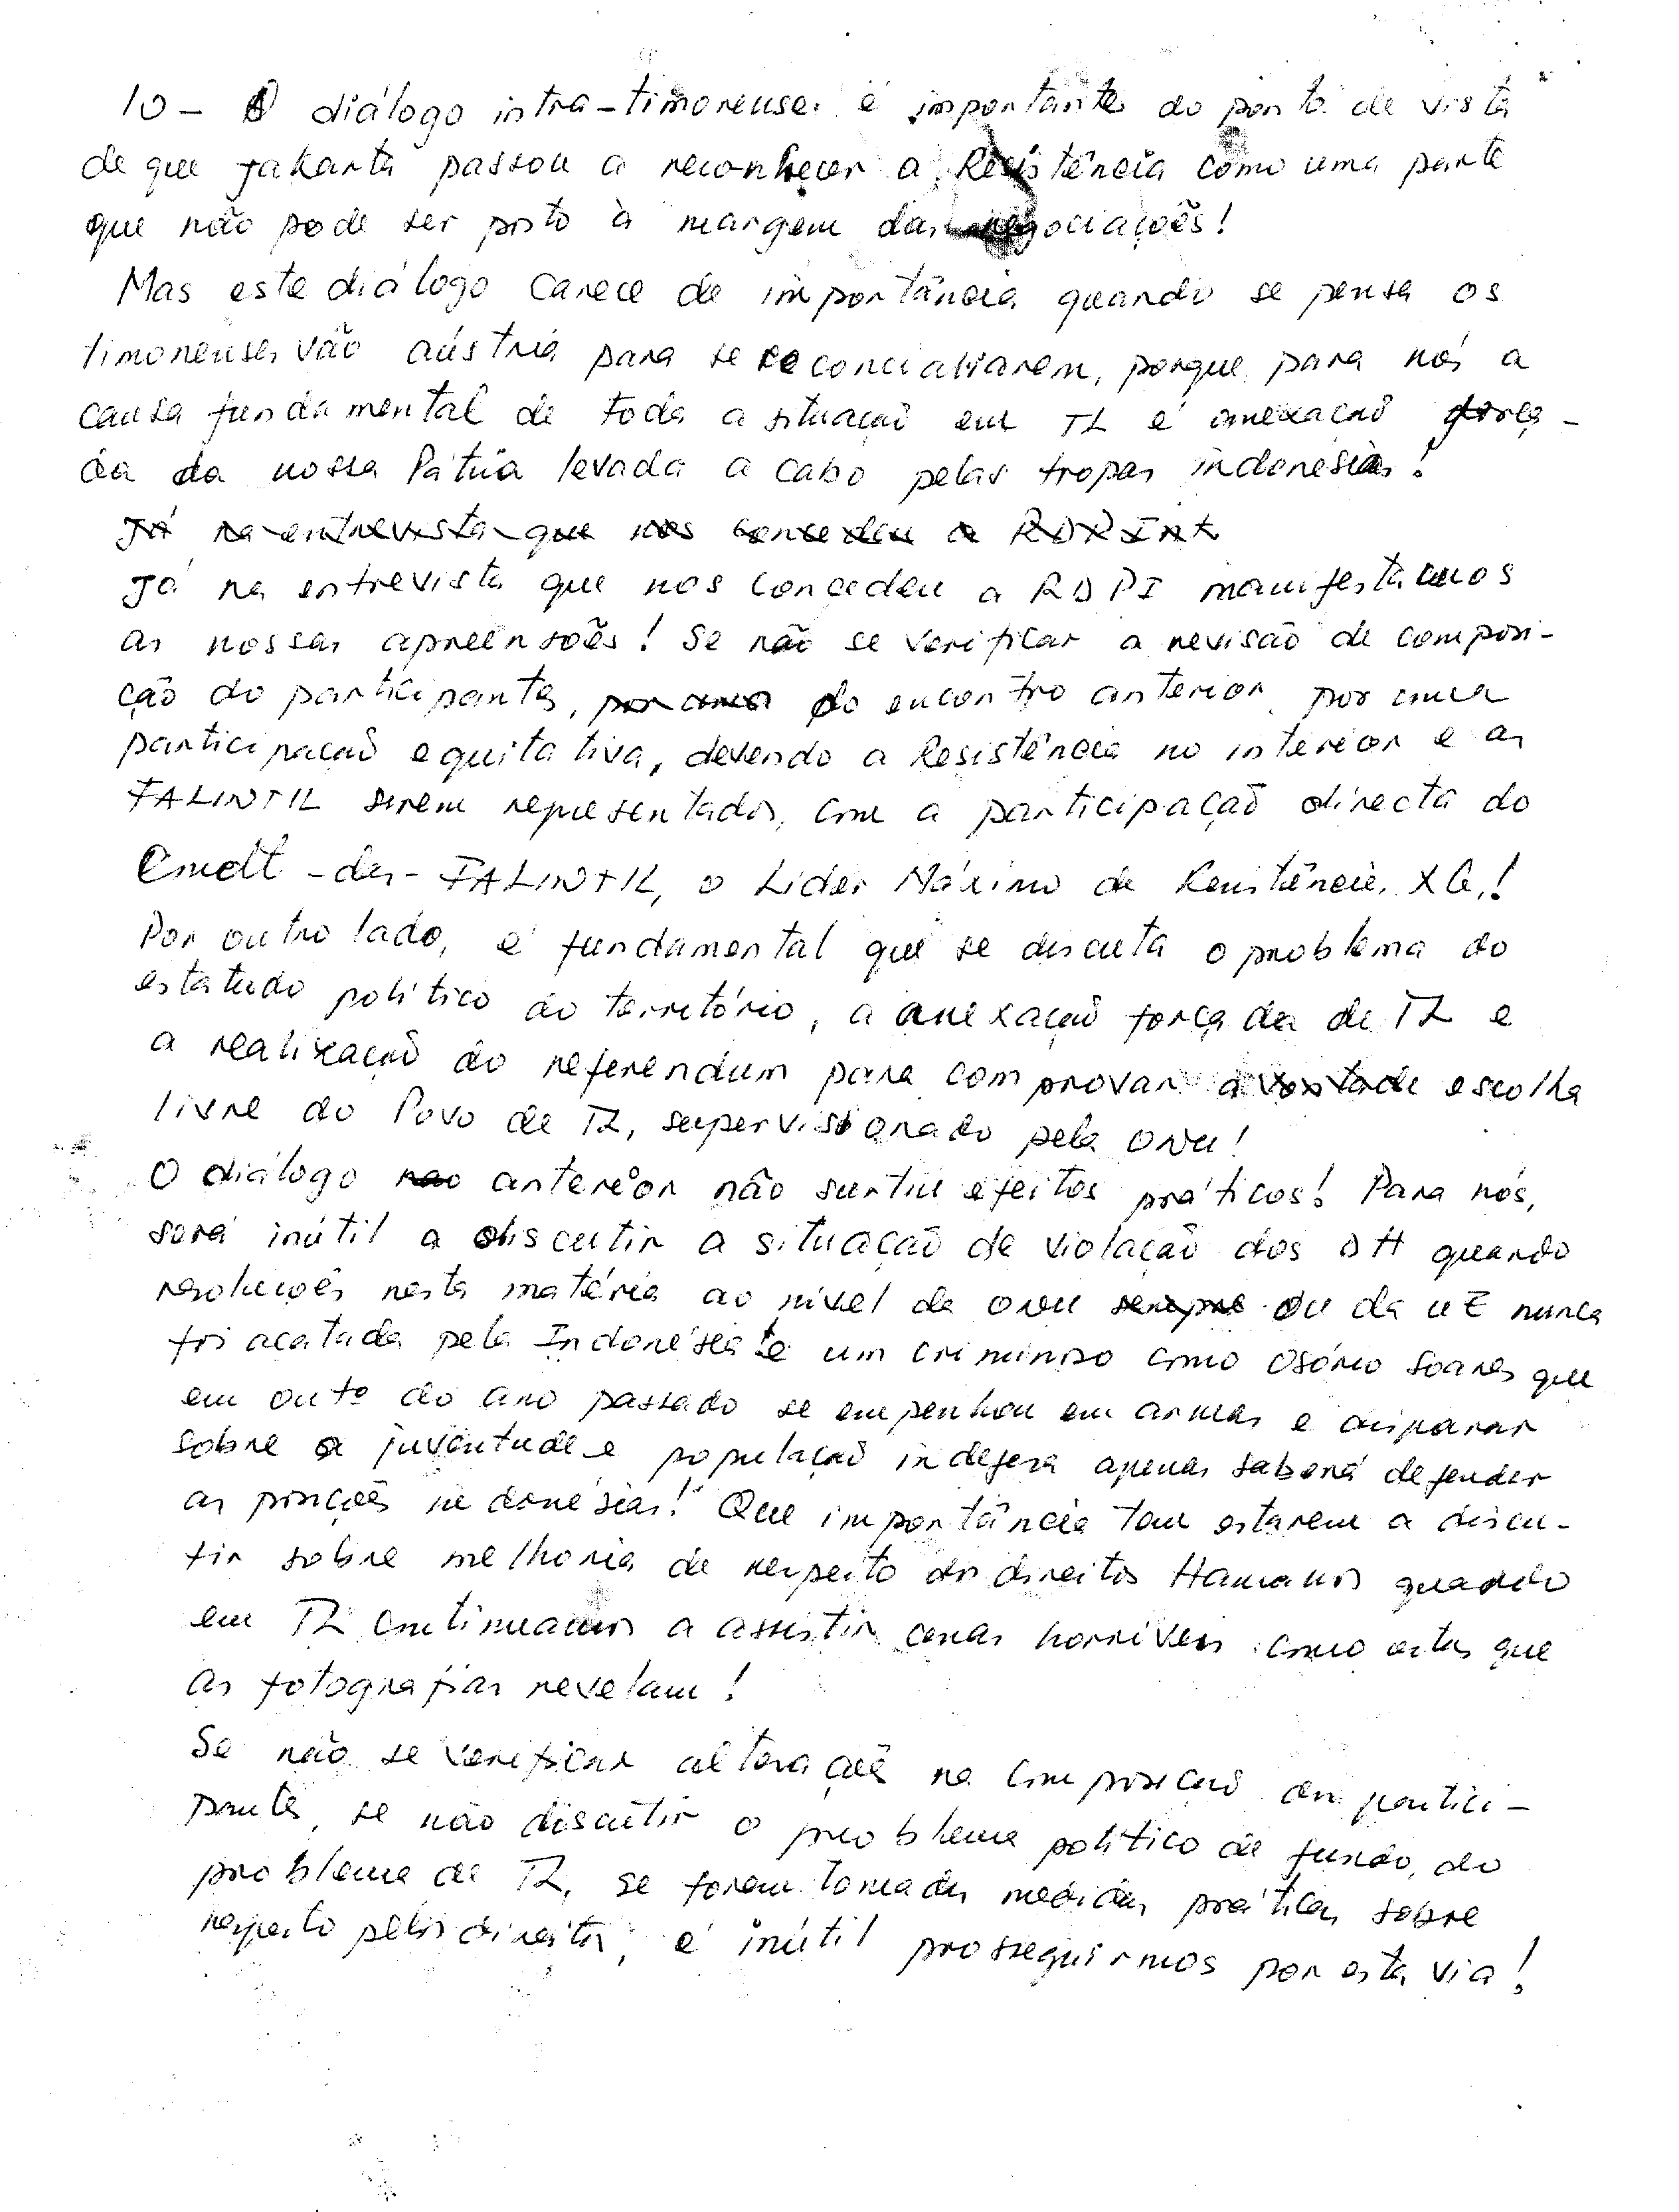 10 - O diálogo intra-timorense é importante do ponto de vista
de que Jakarta passou a reconhecer a Resistência como uma parte
que não pode ser posto à margem das negociações!
Mas este diálogo carece de importância quando se pensa os
timorenses vão aústria para se reconcialiarem, porque para nós a
causa fundamental de toda a situação em TL é anexação força-
da da nossa Pátria levada a cabo pelas tropas indonésias!
Já na entrevista que nos concedeu a RDP Int
Já na entrevista que nos concedeu a RDPI manifestamos
as nossas apreensões! Se não se verificar a revisão de composi-
ção do participantes, por uma do encontro anterior por uma
participação equitativa, devendo a Resistência no interior e as
FALINTIL serem representados, com a participação directa do
Cmdt-das-FALINTIL, o Lider Máximo da Resistência, XG,!
Por outro lado, é fundamental que se discuta o problema do
estatudo político do território, a anexação forçada de TL e
a realização do referendum para comprovar a vontade escolha
livre do Povo de TL, supervisionado pela ONU!
O diálogo não anterior não surtiu efeitos práticos! Para nós,
será inútil a discutir a situação de violação dos DH quando
resoluções nesta matéria ao nível da ONU sempre ou da UE nunca
foi acatada pela Indonésia e um criminoso como Osório Soares que
em outº do ano passado se empenhou em armas e disparar
sobre a juventude e população indefesa apenas saberá defender
as posições indonésias! Que importância tem estarem a discu-
tir sobre melhoria de respeito dos direitos Humanos quando
em TL continuamos a assistir cenas horríveis como estas que
as fotografias revelam!
Se não se verificar alterações na composição dos partici-
pantes, se não discutir o problema político de fundo, do
problema de TL, se forem tomadas medidas práticas sobre
respeito pelos direitos, é inútil prosseguirmos por esta via!